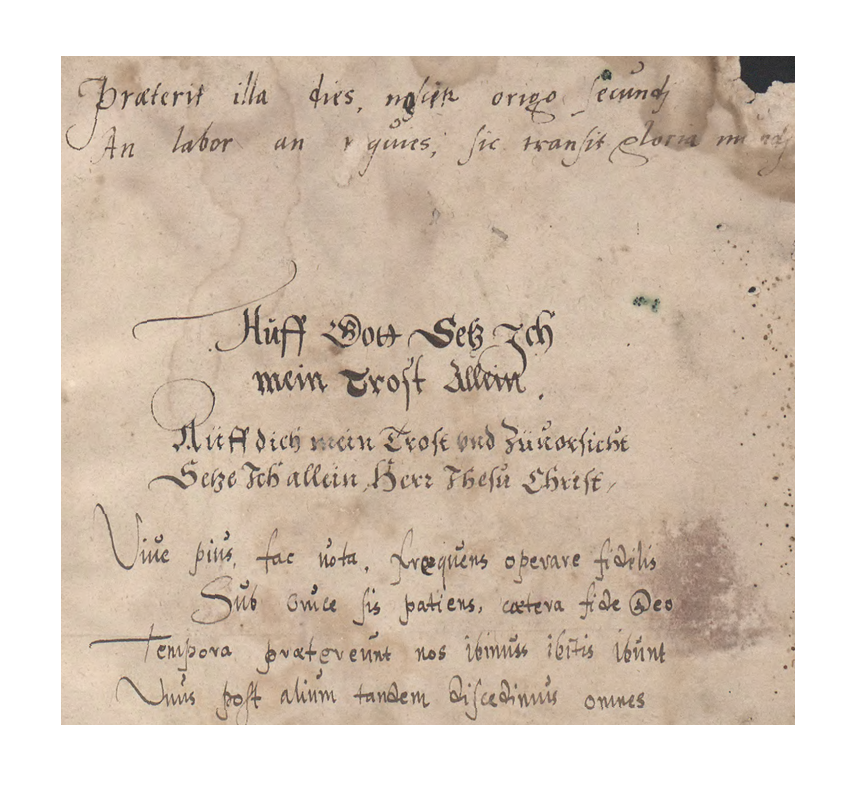 Præterit illa dies, nescitur origo secundi
An labor an requies, sic transit gloria mundi
Auff Gott Setz Ich
mein Trost Allein.
Auff dich mein Trost vnd Zuuorsicht
Setze Ich allein, Herr Jhesu Christ,
Viue pius, fac uota, frequens operare fidelis
Sub cruce sis patiens, cætera fide Deo
Tempora prætereunt nos ibimus ibitis ibunt
Unus post alium tandem discedimus omnes